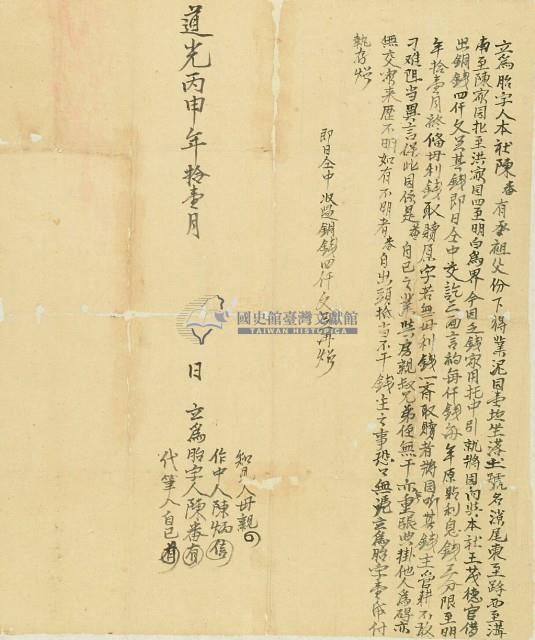 立為胎字人本社陳番有承祖父份下得業泥田壹坵坐落土號名濆尾東至路西至溝
南至陳家田北至洪家田四至明白為界今因乏錢家用托中引就將田向與本社王茂德官借
出銅錢四仟文足其錢即日仝中交訖三面言約每仟錢每年原貼利息錢三分限至明
年拾壹月終備母利錢取贖原字若無母利錢一齊取贖者將田听其錢主管耕不敢
刁难阻当異言保此田係是番自己之業與房親叔兄弟侄無干亦無重張典掛他人為碍亦
無交加來歷不明如有不明者番自出頭抵当不干錢主之事恐口無憑立為胎字壹紙付
執存炤
即日仝中收過銅錢四仟文足再炤
知見人母親
作中人陳炳
道光丙申年拾壹月 日 立為胎字人陳番
代筆人自己
國史館臺灣文獻館
TAIWAN HISTORICA